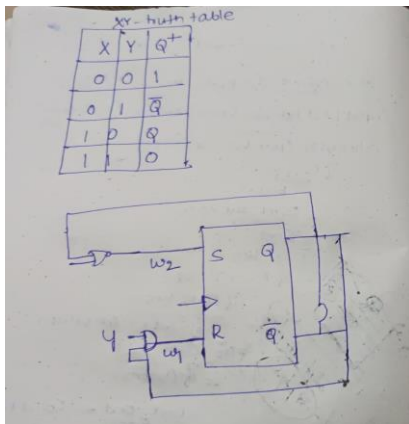 XY-truth table
X Y Q+
0 0 1
0 1 Q̅
1 0 Q
1 1 0
S Q
w2
Y R Q̅
w1